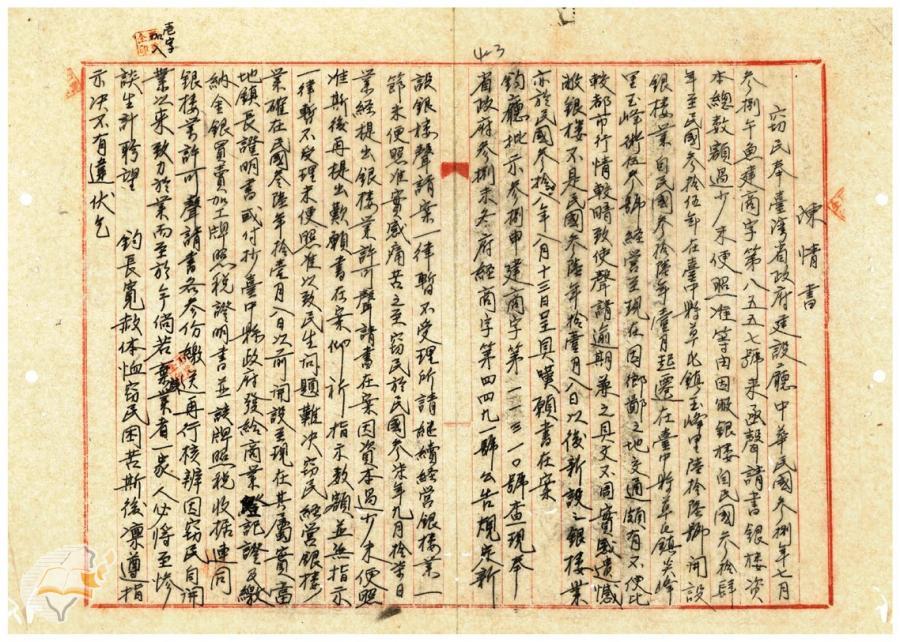 陳情書
竊民奉 臺灣省政府建設廳中華民國叁捌年七月
叁捌午魚建商字第八五五七號來函聲請書銀樓資
本總數額過少未便照准等由因敝銀樓自民國叁拾肆
年至民國叁拾伍年在臺中縣草屯鎮玉峰里 號開設
銀樓業自民國叁拾陸年壹月起遷在臺中縣草屯鎮
里玉峰 號經營至現在因鄉鄙之地交通頗有不便比
較都市行情較暗致使聲請逾期兼之具文又同實感遺憾
敝銀樓不是民國叁陸年拾壹月八日以後新設之銀樓業
亦於民國叁拾 年八月十三日呈具嘆願書在案
鈞廳批示叁捌申 建商字第一一三一0號查現奉
省政府叁捌未 府經商字第四四九一號公告規定新
設銀樓聲請案一律暫不受理所請繼續經營銀樓業一
節未便照准實感痛苦之至竊民於民國參柒年九月拾 日
業經提出銀樓業許可聲請書在案因資本過少未便照
准斯後再提出歎願書在案仰祈指示數額並返指示
一律暫不受理未便照准以致民生問題難決竊民經營銀樓
業確在民國叁陸年拾壹月八日以前開設至現在其屬實當
地鎮長證明書或付抄臺中縣政府發給商業登記證及繳
納金銀買賣加工牌照稅證明書並該牌照稅收据連同
銀樓業許可聲請書各叁份繳送再行核辦因竊民自開
業以來致力於業而至於今倘若棄業者一家人必將至慘
談生計聆望 鈞長寬赦体恤竊民困苦斯後凜遵指
示決不有違伏乞
423
壱字加入